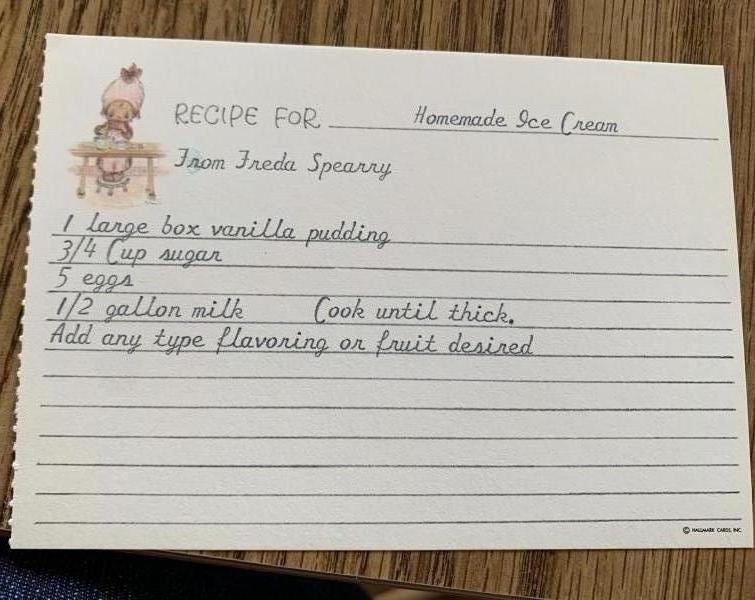 RECIPE FOR Homemade Ice Cream
From Freda Spearry
1 large box vanilla pudding
3/4 Cup sugar
5 eggs
1/2 gallon milk Cook until thick.
Add any type flavoring or fruit desired
© HALLMARK CARDS, INC.